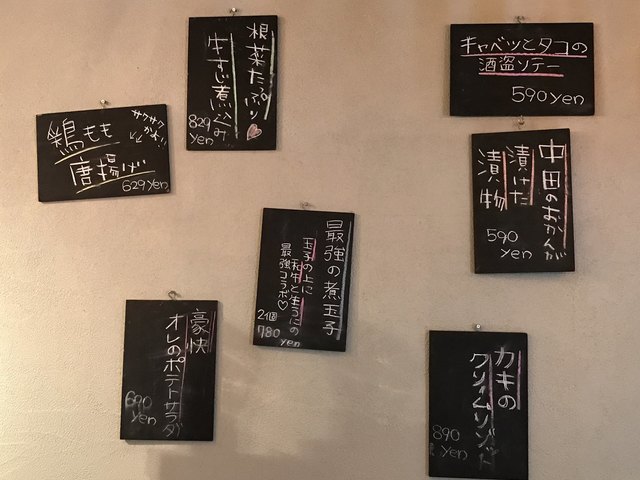 根菜たっぷり♡
牛すじ煮込み
829
yen
キャベツとタコの
酒盗ソテー
590yen
サクサク
鶏もも
唐揚げ
629yen
中田のおかんが
漬けた
漬物
590
yen
最強の煮玉子
玉子の上に
和牛と生うにの
最強コラボ♡
2個
780
yen
豪快
オレのポテトサラダ
690
yen
カキの
クリームリゾット
890
yen